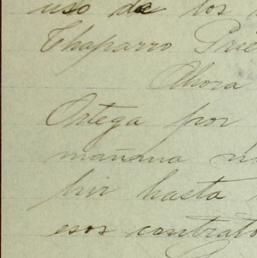 uso de los
Chaparro Prie
Ahora
Ortega por
mañana
hasta
esos contrato